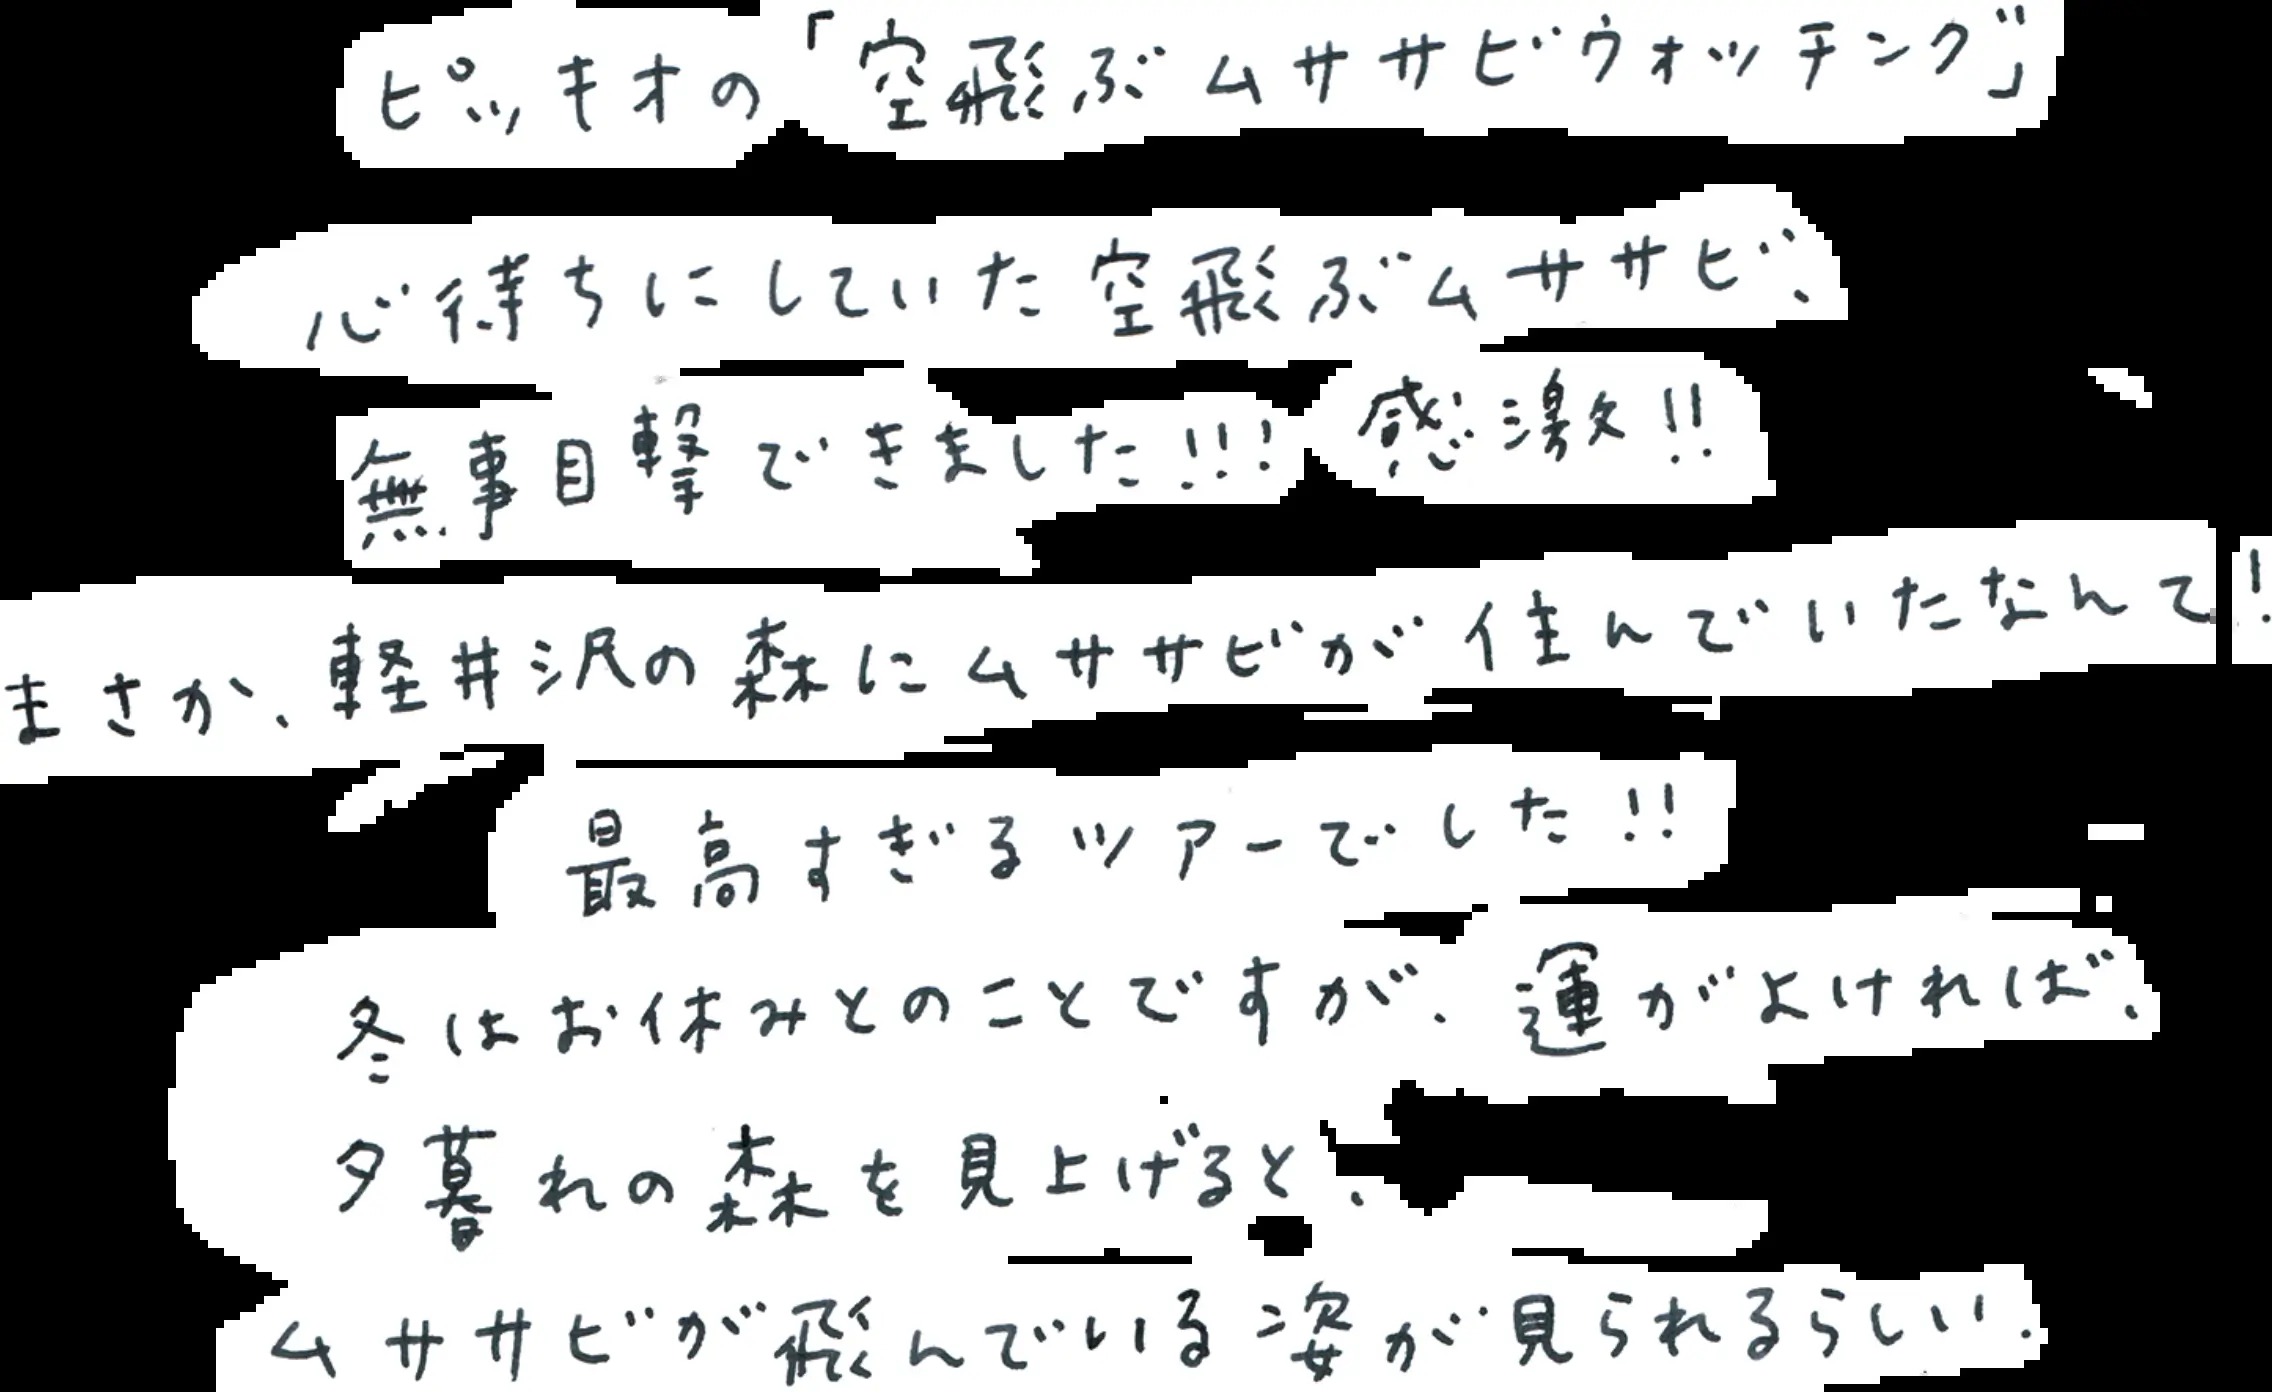 ピッキオの「空飛ぶムササビウォッチング」
心待ちにしていた空飛ぶムササビ、
無事目撃できました!!! 感激!!
まさか、軽井沢の森にムササビが住んでいたなんて!
最高すぎるツアーでした!!
冬はお休みとのことですが、運がよければ、
夕暮れの森を見上げると、
ムササビが飛んでいる姿が見られるらしい.